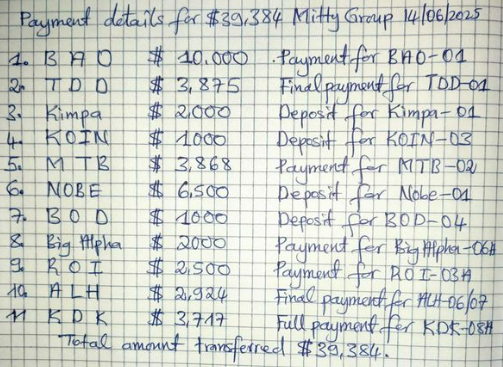 Payment details for $39,384 Mitty Group 14/06/2025
1. BAO $ 10.000 Payment for BAO-01
2. TDD $ 3,875 Final payment for TDD-01
3. Kimpa $ 2.000 Deposit for Kimpa-01
4. KOIN $ 1000 Deposit for KOIN-03
5. MTB $ 3,868 Payment for MTB-02
6. NOBE $ 6,500 Deposit for Nobe-01
7. BOD $ 1000 Deposit for BOD-04
8. Big Alpha $ 2000 Payment for Big Alpha-06A
9. ROI $ 2,500 Payment for ROI-03A
10. ALH $ 2,924 Final payment for ALH-06/07
11 KDK $ 3,717 Full payment for KDK-08A
Total amount transferred $39,384.